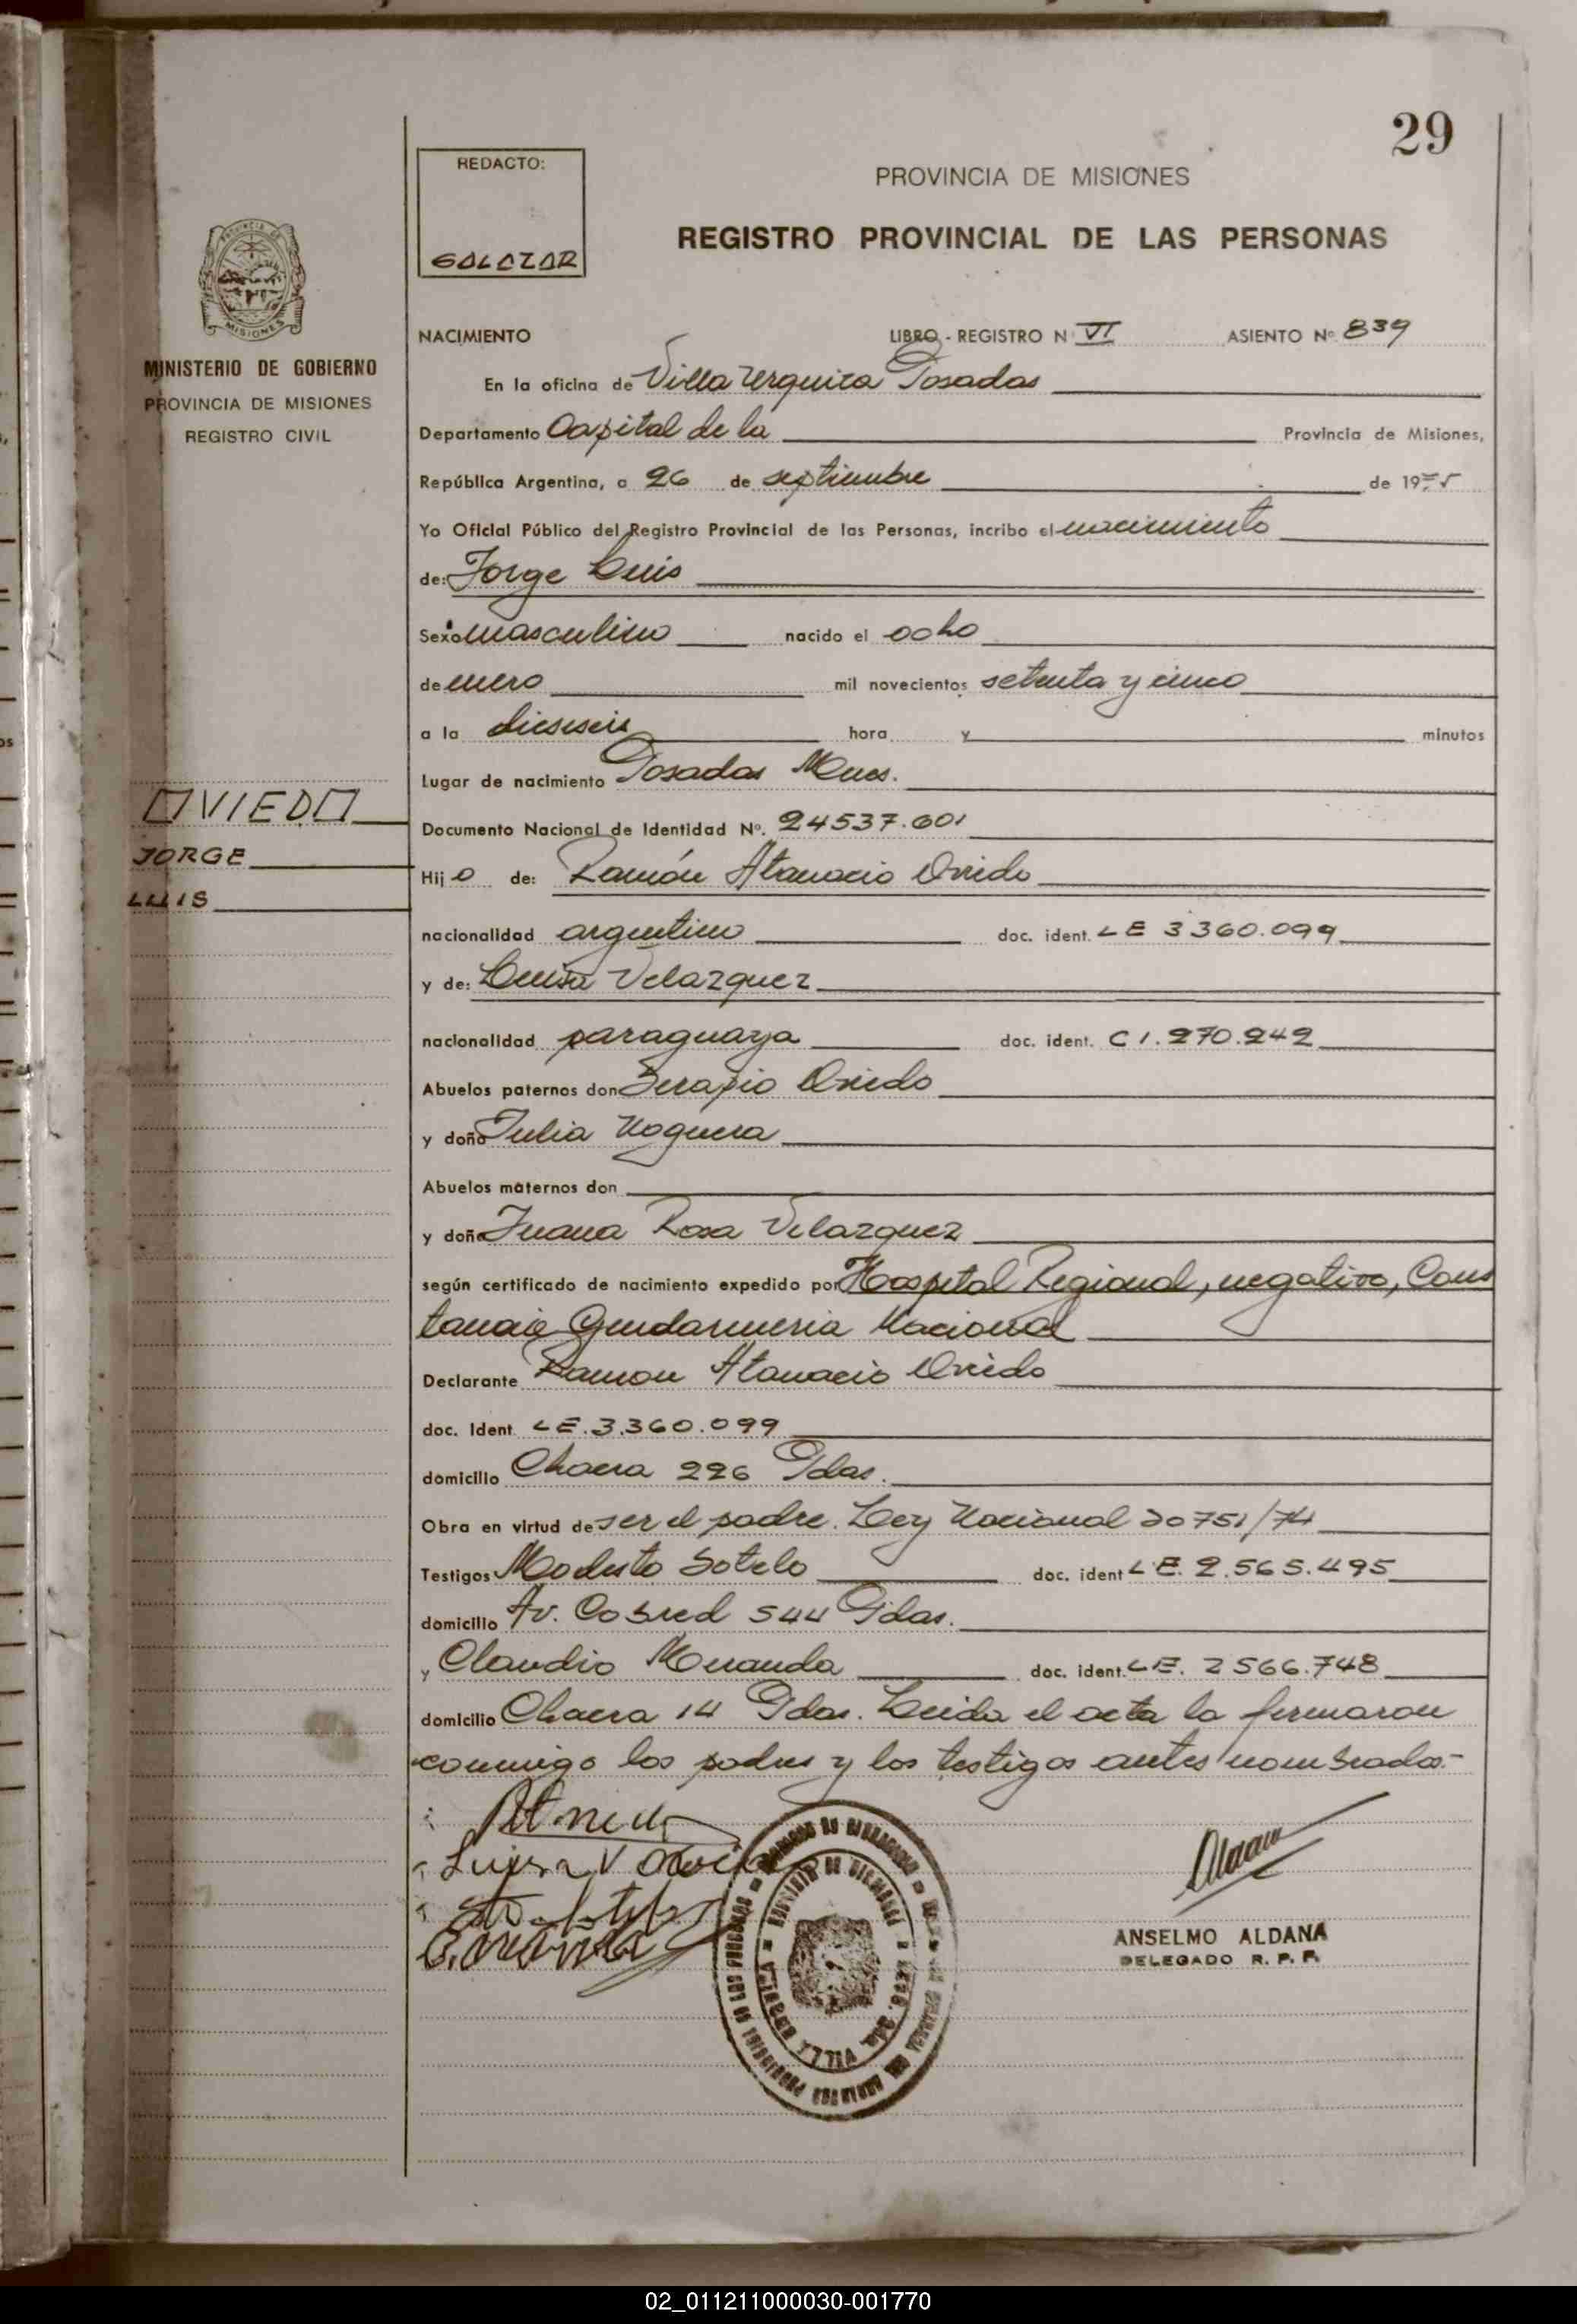 29
REDACTO:
SALAZAR
PROVINCIA DE MISIONES
REGISTRO PROVINCIAL DE LAS PERSONAS
MISIONES
MINISTERIO DE GOBIERNO
PROVINCIA DE MISIONES
REGISTRO CIVIL
NACIMIENTO LIBRO - REGISTRO N VI ASIENTO Nº 839
En la oficina de Villa Urquiza Posadas
Departamento Capital de la Provincia de Misiones,
República Argentina, a 26 de septiembre de 1975
Yo Oficial Público del Registro Provincial de las Personas, incribo el nacimiento
de: Jorge Luis
Sexo masculino nacido el ocho
de enero mil novecientos setenta y cinco
a la dieseseis hora y minutos
Lugar de nacimiento Posadas Mnes.
OVIEDO
JORGE
LUIS
Documento Nacional de Identidad Nº. 24537.601
Hijo de: Ramón Atanacio Oviedo
nacionalidad argentino doc. ident. LE 3360.099
y de: Luisa Velazquez
nacionalidad paraguaya doc. ident. C I. 270.242
Abuelos paternos don Serapio Oviedo
y doña Julia Noguera
Abuelos maternos don
y doña Juana Rosa Velazquez
según certificado de nacimiento expedido por Hospital Regional, negativo, Cons
tancia Gendarmeria Nacional
Declarante Ramon Atanacio Oviedo
doc. Ident. LE. 3.360.099
domicilio Chacra 226 Pdas.
Obra en virtud de ser el padre. Ley Nacional 20751/74
Testigos Modesto Sotelo doc. ident LE. 2.565.495
domicilio Av. Cabred 544 Pdas.
y Claudio Miranda doc. ident. LE. 2566.748
domicilio Chacra 14 Pdas. Leida el acta la firmaron
conmigo los padres y los testigos antes nombrados.-
ANSELMO ALDANA
DELEGADO R. P. P.
VILLA
02_011211000030-001770